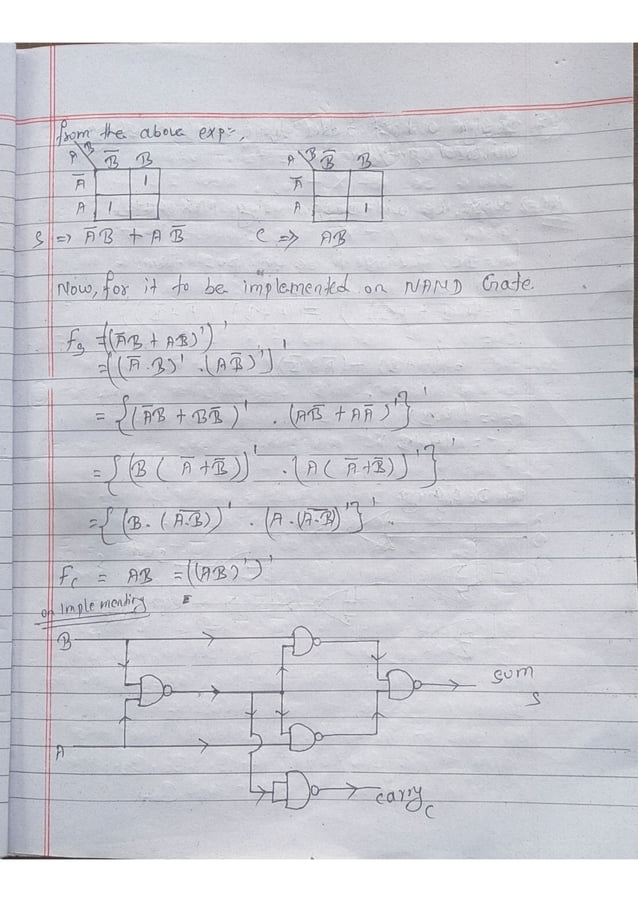 from the above expr,
A B B̅ B A B B̅ B
A̅ 1 A̅
A 1 A 1
S => A̅B + AB̅ C => AB
Now, for it to be implemented on NAND Gate.
Fs = ((A̅B + AB̅)')'
= {(A̅.B)' . (AB̅)'}'
= {(A̅B + BB̅)' . (AB̅ + AA̅)'}'
= {(B(A̅+B̅))' . (A(A̅+B̅))'}'
= {(B.(A.B)̅)' . (A.(A.B)̅)'}'
Fc = AB = ((AB)')'
on Implementing
B
sum
S
A
carry
C